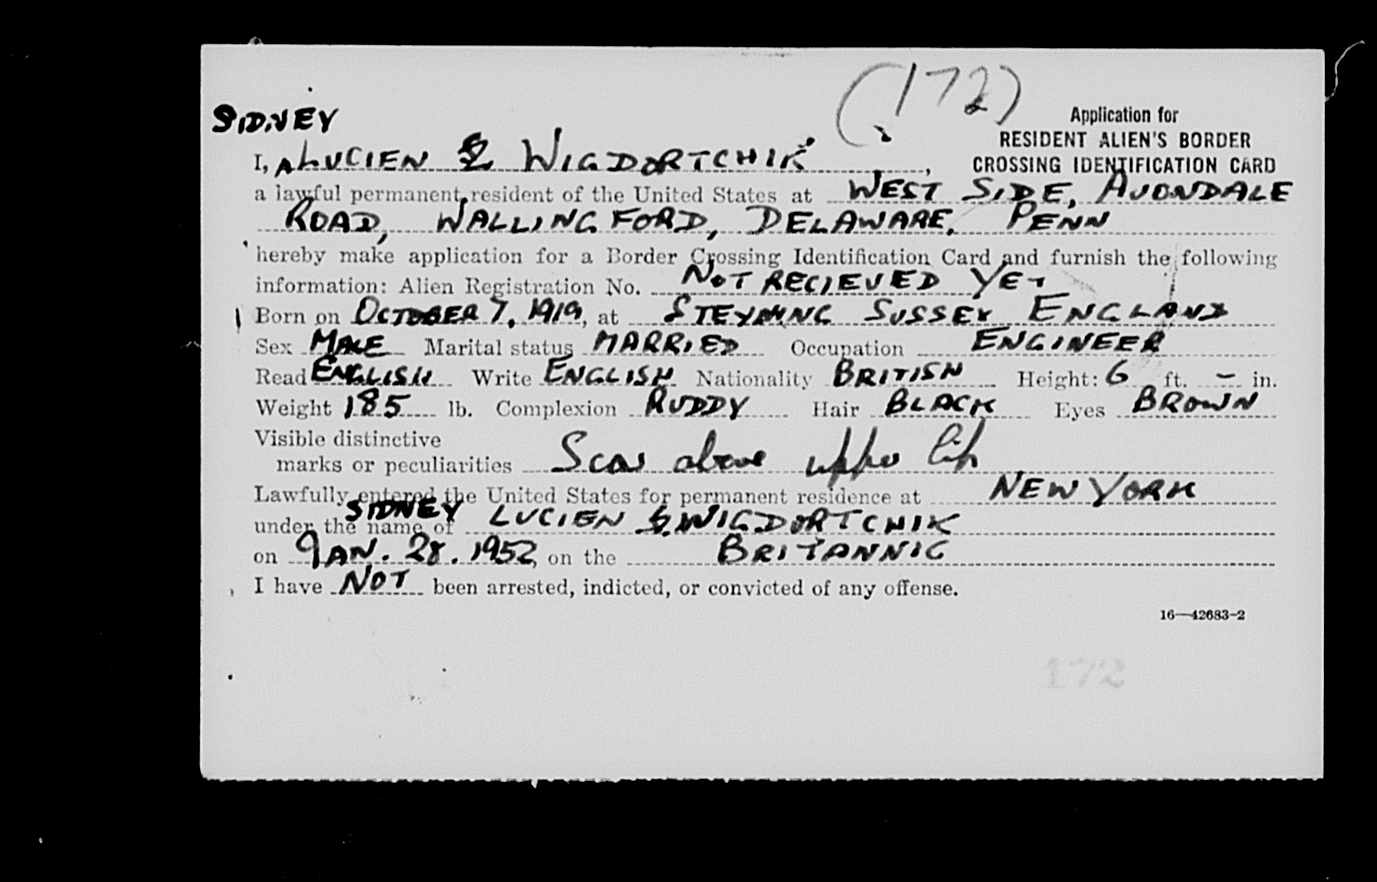 (172)
Application for
RESIDENT ALIEN'S BORDER
CROSSING IDENTIFICATION CARD
SIDNEY
I, LUCIEN WIGDORTCHIK,
a lawful permanent resident of the United States at WEST SIDE, AVONDALE
ROAD, WALLINGFORD, DELAWARE, PENN
hereby make application for a Border Crossing Identification Card and furnish the following
information: Alien Registration No. NOT RECIEVED YET
Born on OCTOBER 7, 1919, at STEYNING SUSSEX ENGLAND
Sex MALE Marital status MARRIED Occupation ENGINEER
Read ENGLISH Write ENGLISH Nationality BRITISH Height: 6 ft. – in.
Weight 185 lb. Complexion RUDDY Hair BLACK Eyes BROWN
Visible distinctive
marks or peculiarities Scar above upper lip
Lawfully entered the United States for permanent residence at NEW YORK
SIDNEY
under the name of LUCIEN WIGDORTCHIK
on JAN. 28. 1952, on the BRITANNIC
I have NOT been arrested, indicted, or convicted of any offense.
16—42683-2
172